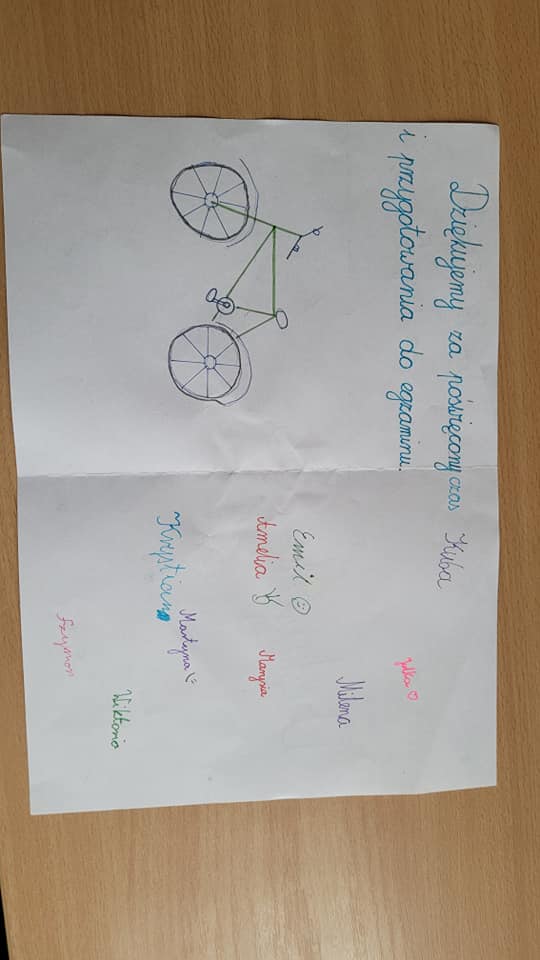 Dziękujemy za poświęcony czas
i przygotowania do egzaminu.
Kuba
Julka
Milena
Emil
Amelia
Marysia
~Krystian
Martyna
Wiktoria
Szymon